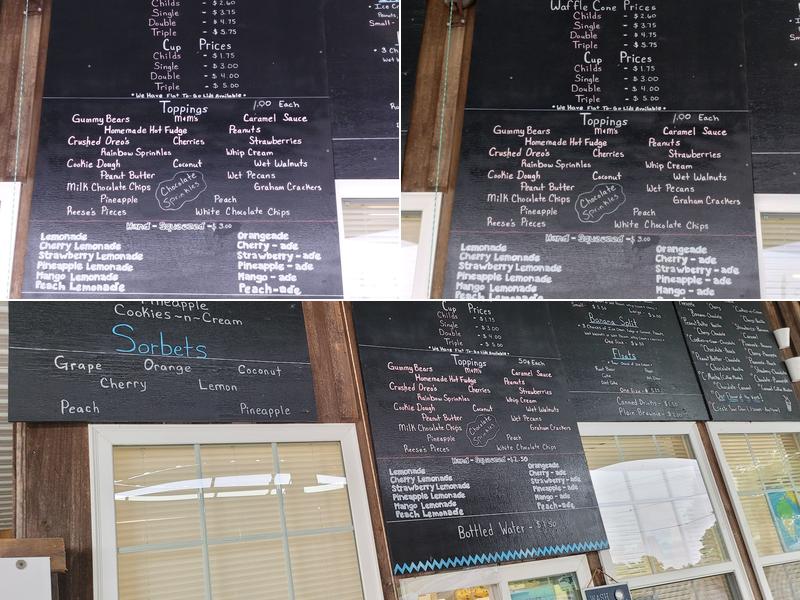 Childs - $2.60
Single - $3.75
Double - $4.75
Triple - $5.75
Cup Prices
Childs - $1.75
Single - $3.00
Double - $4.00
Triple - $5.00
*We Have Flat To-Go Lids Available*
Toppings 1.00 Each
Gummy Bears M&M's Caramel Sauce
Homemade Hot Fudge Peanuts
Crushed Oreo's Cherries Strawberries
Rainbow Sprinkles Whip Cream
Cookie Dough Coconut Wet Walnuts
Peanut Butter Wet Pecans
Milk Chocolate Chips Chocolate Sprinkles Graham Crackers
Pineapple Peach
Reese's Pieces White Chocolate Chips
Hand-Squeezed - $3.00
Lemonade Orangeade
Cherry Lemonade Cherry-ade
Strawberry Lemonade Strawberry-ade
Pineapple Lemonade Pineapple-ade
Mango Lemonade Mango-ade
Peach Lemonade Peach-ade
Waffle Cone Prices
Childs - $2.60
Single - $3.75
Double - $4.75
Triple - $5.75
Cup Prices
Childs - $1.75
Single - $3.00
Double - $4.00
Triple - $5.00
*We Have Flat To-Go Lids Available*
Toppings 1.00 Each
Gummy Bears M&M's Caramel Sauce
Homemade Hot Fudge Peanuts
Crushed Oreo's Cherries Strawberries
Rainbow Sprinkles Whip Cream
Cookie Dough Coconut Wet Walnuts
Peanut Butter Wet Pecans
Milk Chocolate Chips Chocolate Sprinkles Graham Crackers
Pineapple Peach
Reese's Pieces White Chocolate Chips
Hand-Squeezed - $3.00
Lemonade Orangeade
Cherry Lemonade Cherry-ade
Strawberry Lemonade Strawberry-ade
Pineapple Lemonade Pineapple-ade
Mango Lemonade Mango-ade
Peach Lemonade Peach-ade
Pineapple
Cookies-n-Cream
Sorbets
Grape Orange Coconut
Cherry Lemon
Peach Pineapple
Cup Prices
Childs - $1.75
Single - $3.00
Double - $4.00
Triple - $5.00
*We Have Flat To-Go Lids Available*
Toppings 50¢ Each
Gummy Bears M&M's Caramel Sauce
Homemade Hot Fudge Peanuts
Crushed Oreo's Cherries Strawberries
Rainbow Sprinkles Whip Cream
Cookie Dough Coconut Wet Walnuts
Peanut Butter Wet Pecans
Milk Chocolate Chips Chocolate Sprinkles Graham Crackers
Pineapple Peach
Reese's Pieces White Chocolate Chips
Hand-Squeezed - $2.50
Lemonade Orangeade
Cherry Lemonade Cherry-ade
Strawberry Lemonade Strawberry-ade
Pineapple Lemonade Pineapple-ade
Mango Lemonade Mango-ade
Peach Lemonade Peach-ade
Bottled Water -
Banana Split
Floats
One Size
Canned Drinks
Plain Brownie